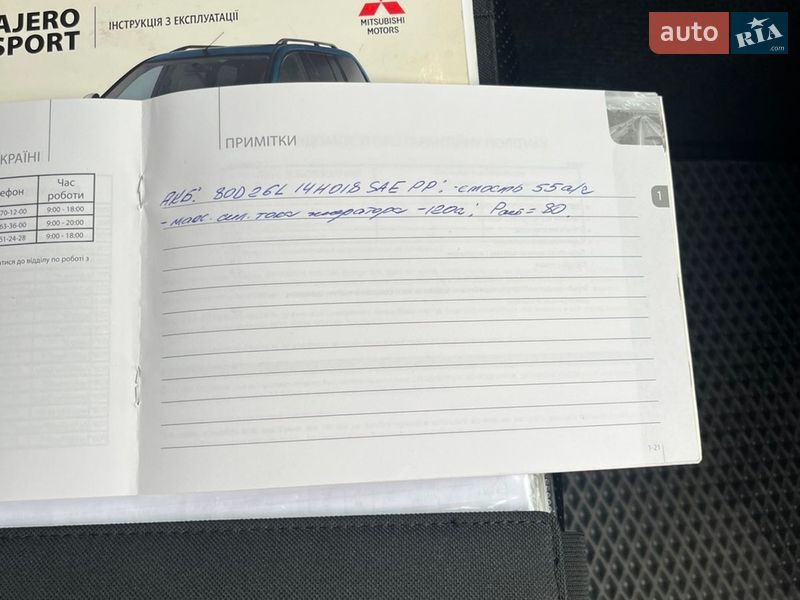 AJERO
SPORT
ІНСТРУКЦІЯ З ЕКСПЛУАТАЦІЇ
MITSUBISHI
MOTORS
auto RIA .com
КРАЇНІ
ефон Час роботи
70-12-00 9:00 - 18:00
63-36-00 9:00 - 20:00
51-24-28 9:00 - 18:00
атися до відділу по роботі з
ПРИМІТКИ
1
АКБ: 80D26L 14H018 SAE PP; -ємкость 55 а/г
- макс. сил. тока генератора -120а; =80.
1-21